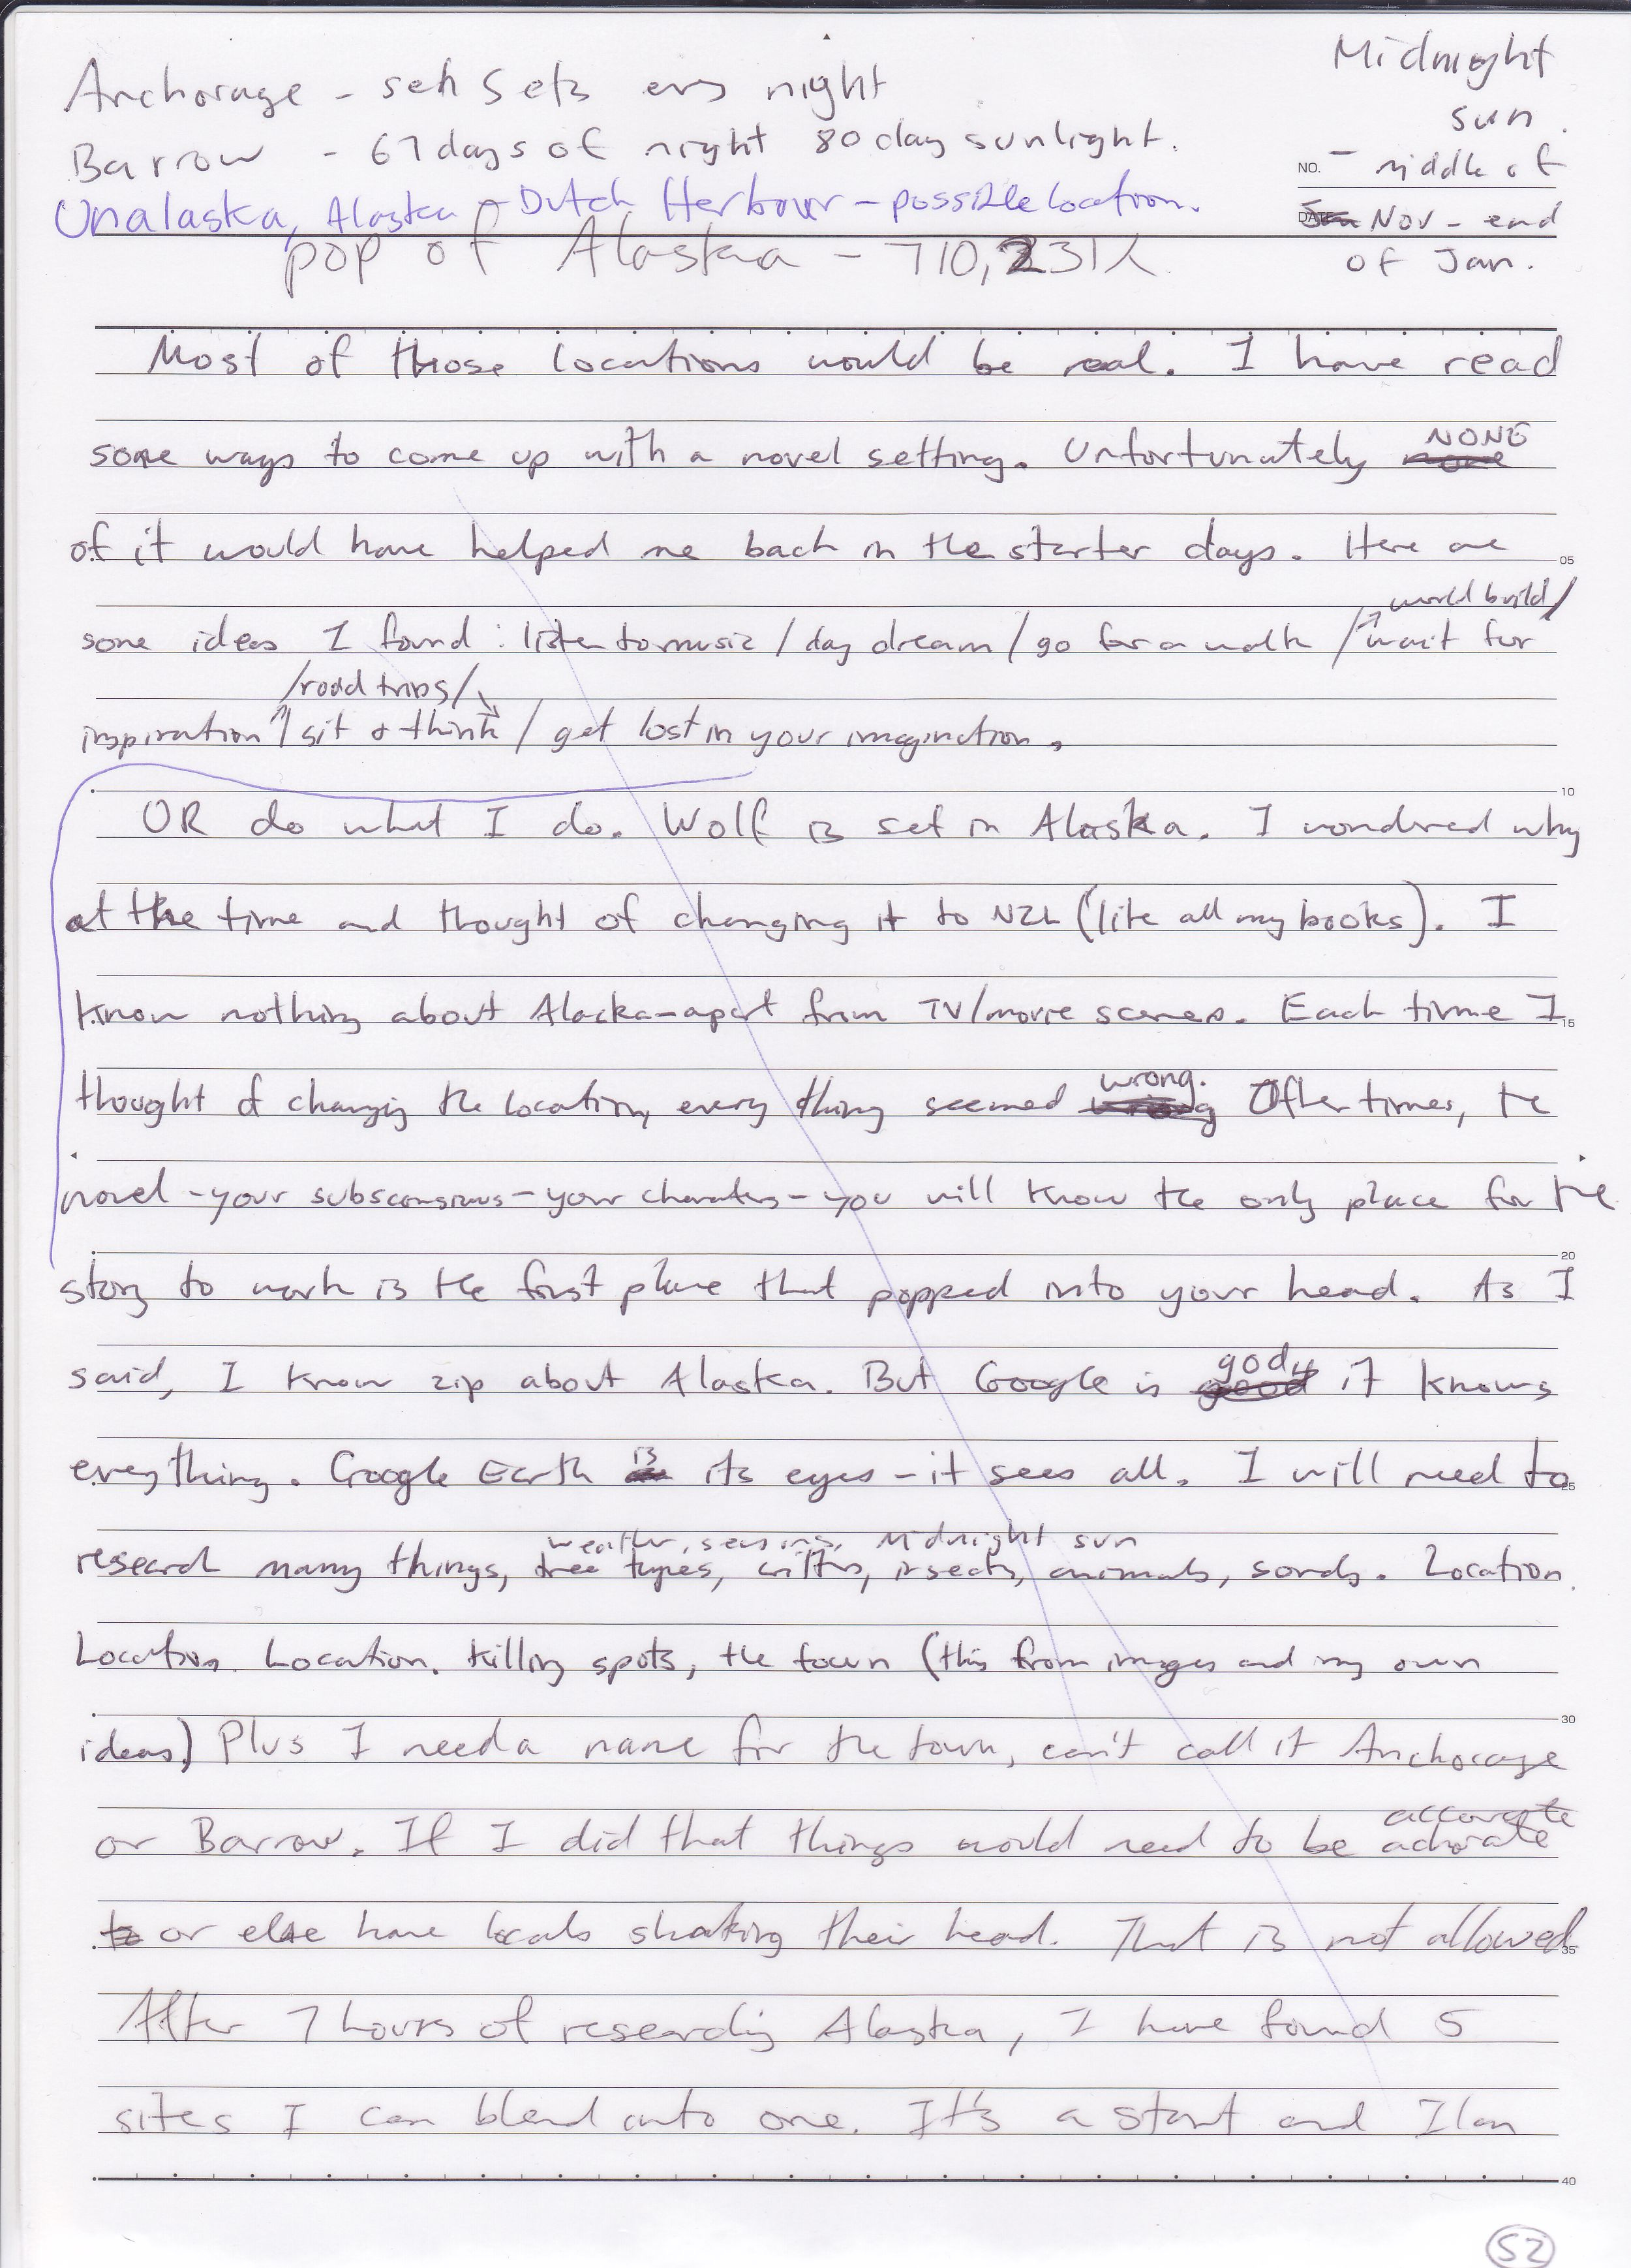 Midnight
sun.
Anchorage - set sets evs night
Barrow - 67 days of night 80 day sunlight.
NO. - middle of
Unalaska, Alaska - Dutch Herbour - possible location.
DATE Jan Nov - end
pop of Alaska - 710,231
of Jan.
Most of those locations would be real. I have read
some ways to come up with a novel setting. Unfortunately none NONE
of it would have helped me back in the starter days. Here are
05
world build/
some ideas I found : listen to music / day dream / go for a walk / wait for
/road trips/
inspiration / sit & think / get lost in your imagination.
10
OR do what I do. Wolf is set in Alaska. I wondered why
at the time and thought of changing it to NZL (like all my books). I
know nothing about Alaska - apart from TV/movie scenes. Each time I
15
wrong.
thought of changing the location, every thing seemed wrong Often times, the
novel - your subsconsious - your charaters - you will know the only place for the
20
story to work is the first place that popped into your head. As I
said, I know zip about Alaska. But Google is good gody it knows
everything. Google Earth is its eyes - it sees all. I will need to
25
weather, seasons, Midnight sun
research many things, tree types, insects, animals, sonds. Location.
Location. Location. Killing spots, the town (this from images and my own
30
ideas) Plus I need a name for the town, can't call it Anchorage
accourate
or Barrow. If I did that things would need to be achorate
to or else have locals shaking their head. That is not allowed
35
After 7 hours of researchig Alaska, I have found 5
sites I can blend into one. It's a start and I can
40
52